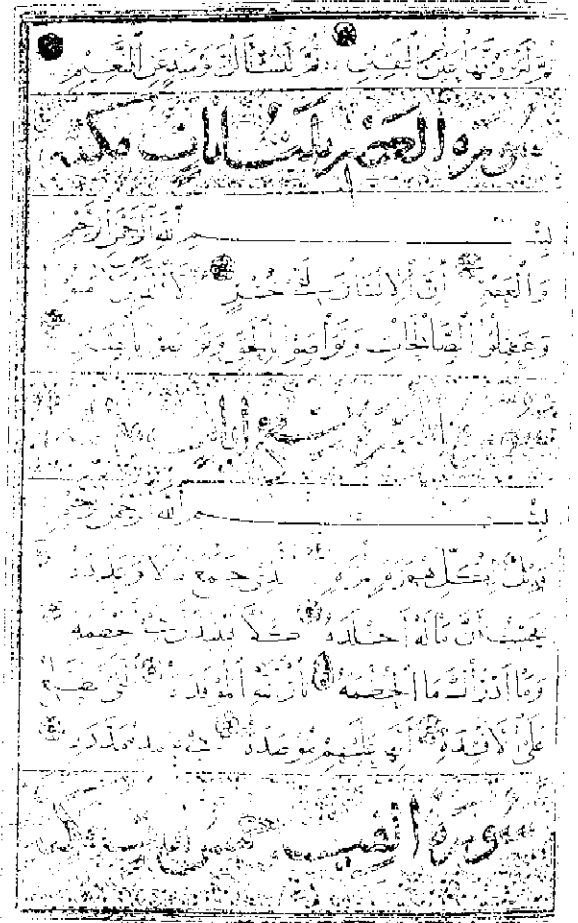 ثُمَّ لَتَرَوُنَّهَا عَيْنَ الْيَقِينِ ثُمَّ لَتُسْأَلُنَّ يَوْمَئِذٍ عَنِ النَّعِيمِ
سورة العصر ثلث ايات مكية
بِسْمِ اللَّهِ الرَّحْمَنِ الرَّحِيمِ
وَالْعَصْرِ اِنَّ الْاِنْسَانَ لَفِي خُسْرٍ اِلَّا الَّذِينَ اٰمَنُوا
وَعَمِلُوا الصَّالِحَاتِ وَتَوَاصَوْا بِالْحَقِّ وَتَوَاصَوْا بِالصَّبْرِ
سورة
بِسْمِ اللَّهِ الرَّحْمَنِ الرَّحِيمِ
وَيْلٌ لِكُلِّ هُمَزَةٍ لُمَزَةٍ اَلَّذِي جَمَعَ مَالًا وَعَدَّدَهُ
يَحْسَبُ اَنَّ مَالَهُ اَخْلَدَهُ كَلَّا لَيُنْبَذَنَّ فِي الْحُطَمَةِ
وَمَا اَدْرٰيكَ مَا الْحُطَمَةُ نَارُ اللَّهِ الْمُوقَدَةُ اَلَّتِي تَطَّلِعُ
عَلَى الْاَفْئِدَةِ اِنَّهَا عَلَيْهِمْ مُؤْصَدَةٌ فِي عَمَدٍ مُمَدَّدَةٍ
سورة الفيل خمس ايات مكية